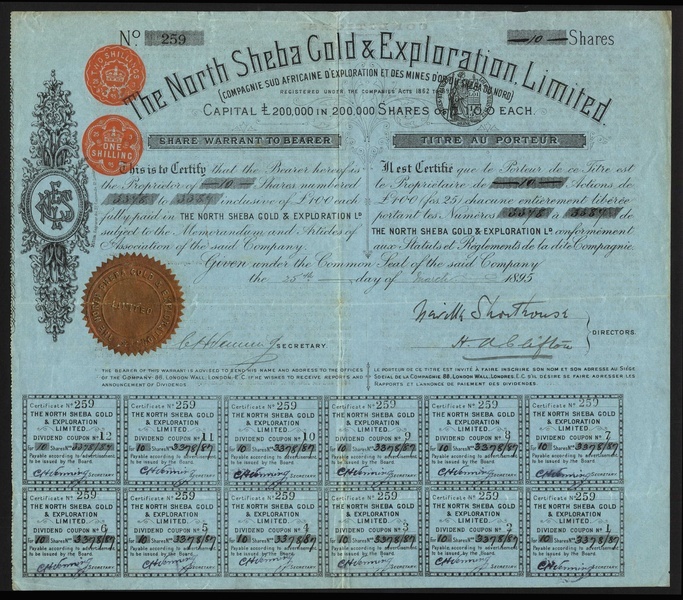 No. 259
10 Shares
TWO SHILLINGS
The North Sheba Gold & Exploration, Limited.
(COMPAGNIE SUD AFRICAINE D'EXPLORATION ET DES MINES D'OR DU SHEBA DU NORD)
REGISTERED UNDER THE COMPANIES ACTS 1862 TO
CAPITAL £200,000 IN 200,000 SHARES OF £1.0.0 EACH.
ONE SHILLING
SHARE WARRANT TO BEARER
This is to Certify that the Bearer hereof is
the Proprietor of 10 Shares numbered
3378 to 3387 inclusive of £1.0.0 each
fully paid in THE NORTH SHEBA GOLD & EXPLORATION LD
subject to the Memorandum and Articles of
Association of the said Company.
TITRE AU PORTEUR
Il est Certifié que le Porteur de ce Titre est
le Propriétaire de 10 Actions de
£1.0.0 (fcs 25) chacune entièrement libérée
portant les Numéros 3378 à 3387 de
THE NORTH SHEBA GOLD & EXPLORATION LD conformément
aux Statuts et Règlements de la dite Compagnie.
Given under the Common Seal of the said Company
the 25th day of March 1895
LIMITED
SECRETARY.
Neville Shorthouse
H. A. Clifton
DIRECTORS.
THE BEARER OF THIS WARRANT IS ADVISED TO SEND HIS NAME AND ADDRESS TO THE OFFICES
OF THE COMPANY 88, LONDON WALL, LONDON. E.C. IF HE WISHES TO RECEIVE REPORTS AND
ANNOUNCEMENT OF DIVIDENDS.
LE PORTEUR DE CE TITRE EST INVITÉ À FAIRE INSCRIRE SON NOM ET SON ADRESSE AU SIÈGE
SOCIAL DE LA COMPAGNIE 88, LONDON WALL, LONDRES, E.C. S'IL DÉSIRE SE FAIRE ADRESSER LES
RAPPORTS ET L'ANNONCE DE PAIEMENT DES DIVIDENDES.
Certificate No 259
THE NORTH SHEBA GOLD
& EXPLORATION
LIMITED.
DIVIDEND COUPON No 12
for 10 Shares Nos 3378/87
Payable according to advertisement
to be issued by the Board.
Secretary
Certificate No 259
THE NORTH SHEBA GOLD
& EXPLORATION
LIMITED.
DIVIDEND COUPON No 11
for 10 Shares Nos 3378/87
Payable according to advertisement
to be issued by the Board.
Secretary
Certificate No 259
THE NORTH SHEBA GOLD
& EXPLORATION
LIMITED.
DIVIDEND COUPON No 10
for 10 Shares Nos 3378/87
Payable according to advertisement
to be issued by the Board.
Secretary
Certificate No 259
THE NORTH SHEBA GOLD
& EXPLORATION
LIMITED.
DIVIDEND COUPON No 9
for 10 Shares Nos 3378/87
Payable according to advertisement
to be issued by the Board.
Secretary
Certificate No 259
THE NORTH SHEBA GOLD
& EXPLORATION
LIMITED.
DIVIDEND COUPON No 8
for 10 Shares Nos 3378/87
Payable according to advertisement
to be issued by the Board.
Secretary
Certificate No 259
THE NORTH SHEBA GOLD
& EXPLORATION
LIMITED.
DIVIDEND COUPON No 7
for 10 Shares Nos 3378/87
Payable according to advertisement
to be issued by the Board.
Secretary
Certificate No 259
THE NORTH SHEBA GOLD
& EXPLORATION
LIMITED.
DIVIDEND COUPON No 6
for 10 Shares Nos 3378/87
Payable according to advertisement
to be issued by the Board.
Secretary
Certificate No 259
THE NORTH SHEBA GOLD
& EXPLORATION
LIMITED.
DIVIDEND COUPON No 5
for 10 Shares Nos 3378/87
Payable according to advertisement
to be issued by the Board.
Secretary
Certificate No 259
THE NORTH SHEBA GOLD
& EXPLORATION
LIMITED.
DIVIDEND COUPON No 4
for 10 Shares Nos 3378/87
Payable according to advertisement
to be issued by the Board.
Secretary
Certificate No 259
THE NORTH SHEBA GOLD
& EXPLORATION
LIMITED.
DIVIDEND COUPON No 3
for 10 Shares Nos 3378/87
Payable according to advertisement
to be issued by the Board.
Secretary
Certificate No 259
THE NORTH SHEBA GOLD
& EXPLORATION
LIMITED.
DIVIDEND COUPON No 2
for 10 Shares Nos 3378/87
Payable according to advertisement
to be issued by the Board.
Secretary
Certificate No 259
THE NORTH SHEBA GOLD
& EXPLORATION
LIMITED.
DIVIDEND COUPON No 1
for 10 Shares Nos 3378/87
Payable according to advertisement
to be issued by the Board.
Secretary